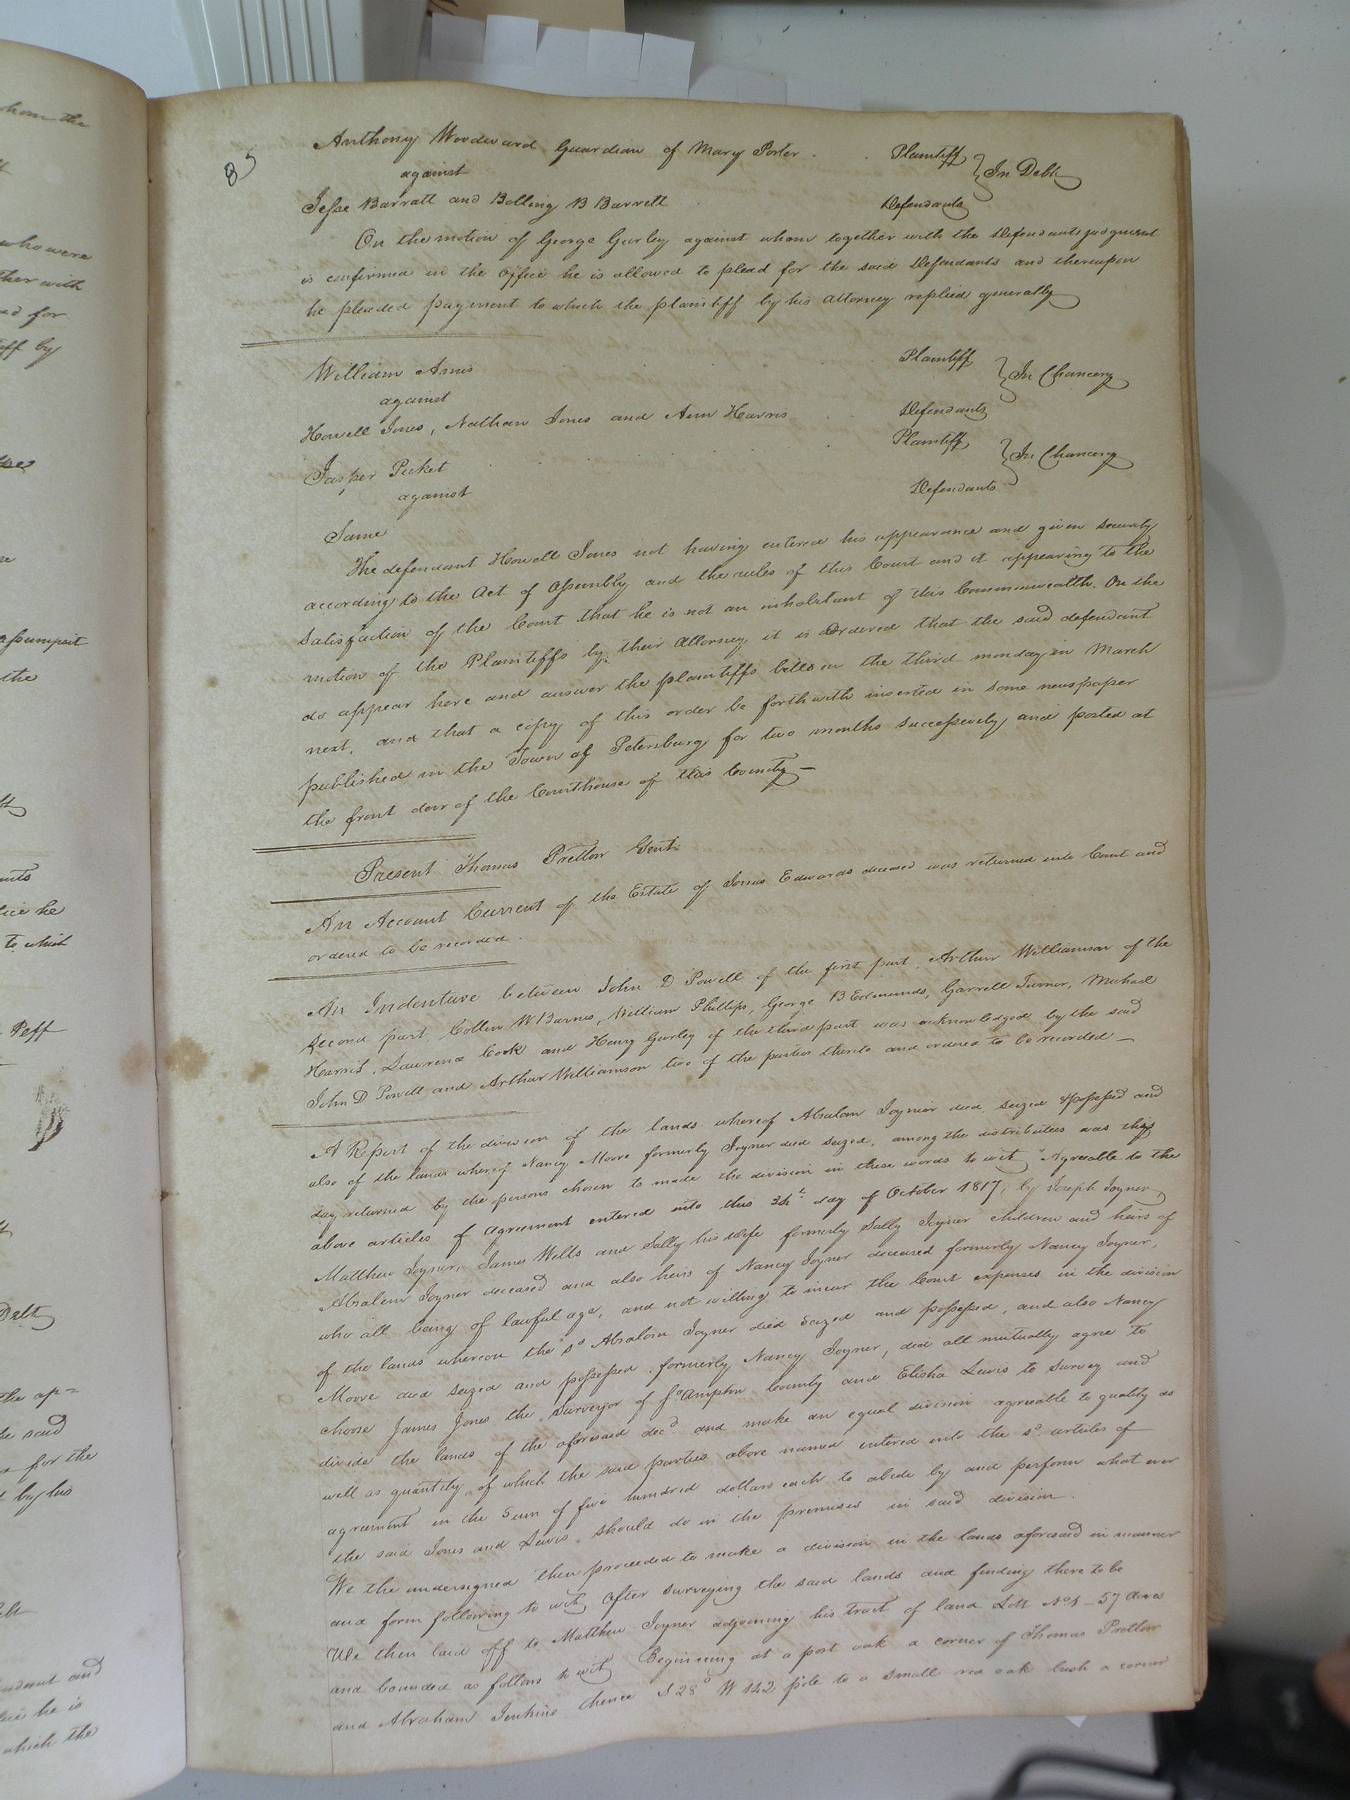 85
Anthony Woodward Guardian of Mary Porter Plaintiff
against } In Debt
Jesse Barratt and Bolling B Barrett Defendants
On the motion of George Gurley against whom together with the Defendants judgment
is confirmed in the office he is allowed to plead for the said Defendants and thereupon
he pleaded payment to which the plaintiff by his attorney replied generally
William Amis Plaintiff
against } In Chancery
Howell Jones, Nathan Jones and Ann Harris Defendants
Jasper Picket Plaintiff
against } In Chancery
Same Defendants
The defendant Howell Jones not having entered his appearance and given security
according to the Act of Assembly and the rules of this Court and it appearing to the
satisfaction of the Court that he is not an inhabitant of this Commonwealth. On the
motion of the Plaintiffs by their Attorney it is Ordered that the said defendant
do appear here and answer the plaintiffs bills on the third monday in March
next, and that a copy of this order be forthwith inserted in some newspaper
published in the Town of Petersburg for two months successively and posted at
the front door of the Courthouse of this County —
Present Thomas Pretlow Gent.
An Account Current of the Estate of Jonas Edwards deceased was returned into Court and
ordered to be recorded.
An Indenture between John D Powell of the first part, Arthur Williamson of the
second part Collin W Barnes, William Phillips, George B Edmunds, Garrell Turner, Michael
Harris, Lawrence Cook and Henry Gurley of the third part was acknowledged by the said
John D Powell and Arthur Williamson two of the parties thereto and ordered to be recorded —
A Report of the division of the lands whereof Absalom Joyner died seized & possessed and
also of the lands whereof Nancy Moore formerly Joyner died seized, among the distributees was this
day returned by the persons chosen to make the division in these words to wit "Agreeable to the
above articles of agreement entered into this 24th day of October 1817, by Joseph Joyner,
Matthew Joyner, James Wells and Sally his wife formerly Sally Joyner children and heirs of
Absalom Joyner deceased and also heirs of Nancy Joyner deceased formerly Nancy Joyner,
who all being of lawful age, and not willing to incur the Court expenses in the division
of the lands whereon the sd Absalom Joyner died seized and possessed, and also Nancy
Moore died seized and possessed, formerly Nancy Joyner, did all mutually agree to
choose James Jones the surveyor of So Ampton County and Elisha Lewis to survey and
divide the lands of the aforesaid decd and make an equal division agreable to quality as
well as quantity, of which the said parties above named entered into the sd articles of
agreement in the sum of five hundred dollars each to abide by and perform what ever
the said Jones and Lewis, should do in the premises in said division.
We the undersigned then proceeded to make a division in the lands aforesaid in manner
and form following to wit, after surveying the said lands and finding there to be
We then laid off to Matthew Joyner adjoining his tract of land Lott No 1 – 57 Acres
and bounded as follows to wit, Beginning at a post oak a corner of Thomas Pretlow
and Abraham Jenkins thence S 28° W 142 pole to a small red oak bush a corner